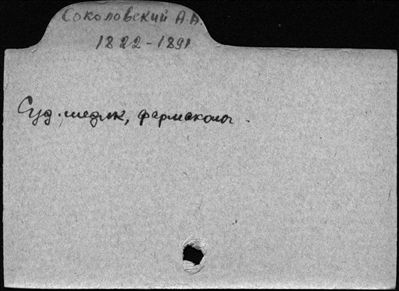 Соколовский А.А.
1822-1891
Суд. медик, фармаколог.